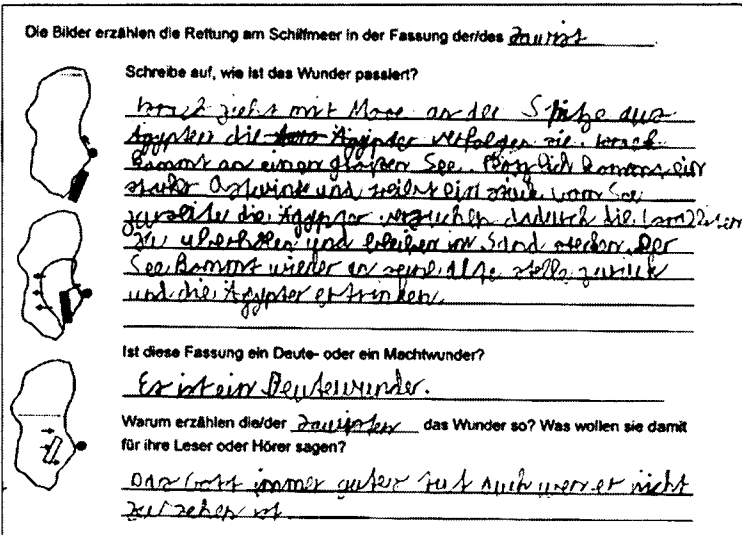 Die Bilder erzählen die Rettung am Schilfmeer in der Fassung der/des Jawist
Schreibe auf, wie ist das Wunder passiert?
zieht mit Mose an der Spitze aus
Ägypten die Ägypter verfolgen sie.
kommt an einen großen See. Plötzlich kommt ein
starker Ostwind und teilt ein stück vom See
die Ägypter versuchen dadurch die
zu überholen und bleiben im Sand stecken. Der
See kommt wieder an seine alte stelle zurück
und die Ägypter ertrinken.
Ist diese Fassung ein Deute- oder ein Machtwunder?
Es ist ein Deutewunder.
Warum erzählen die/der Jawisten das Wunder so? Was wollen sie damit
für ihre Leser oder Hörer sagen?
Das Gott immer gutes tut auch wen er nicht
zu sehen ist